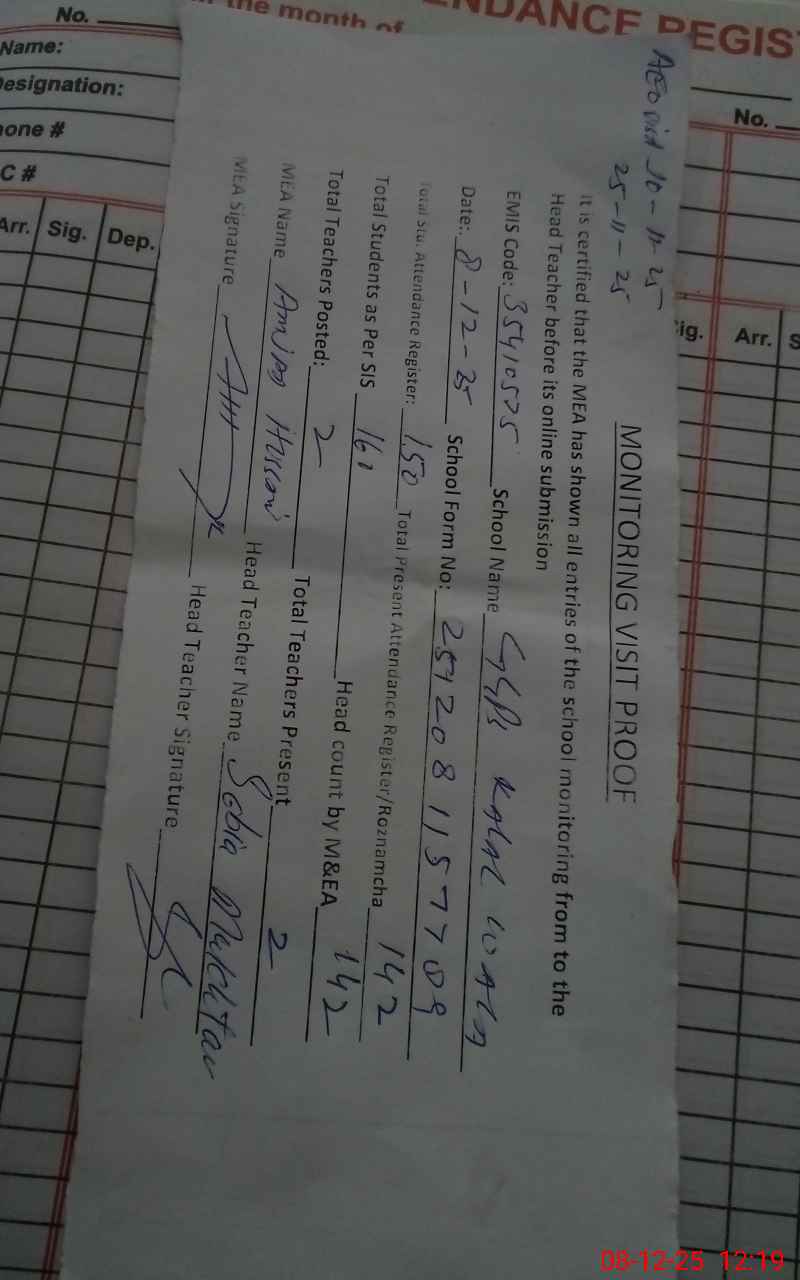 the month of
NDANCE REGIS
No.
Name:
Designation:
hone #
C #
Arr. Sig. Dep.
No.
ig. Arr. S
AEO visit 10-11-25
25-11-25
MONITORING VISIT PROOF
It is certified that the MEA has shown all entries of the school monitoring from to the
Head Teacher before its online submission
EMIS Code: 35410575 School Name GGPS KALAL WALA
Date: 8-12-25 School Form No: 2542081157709
Total Stu. Attendance Register: 150 Total Present Attendance Register/Roznamcha 142
Total Students as Per SIS 160 Head count by M&EA 142
Total Teachers Posted: 2 Total Teachers Present 2
MEA Name Amjad Hussain Head Teacher Name Sobia Mukhtar
MEA Signature Head Teacher Signature
08-12-25 12:19